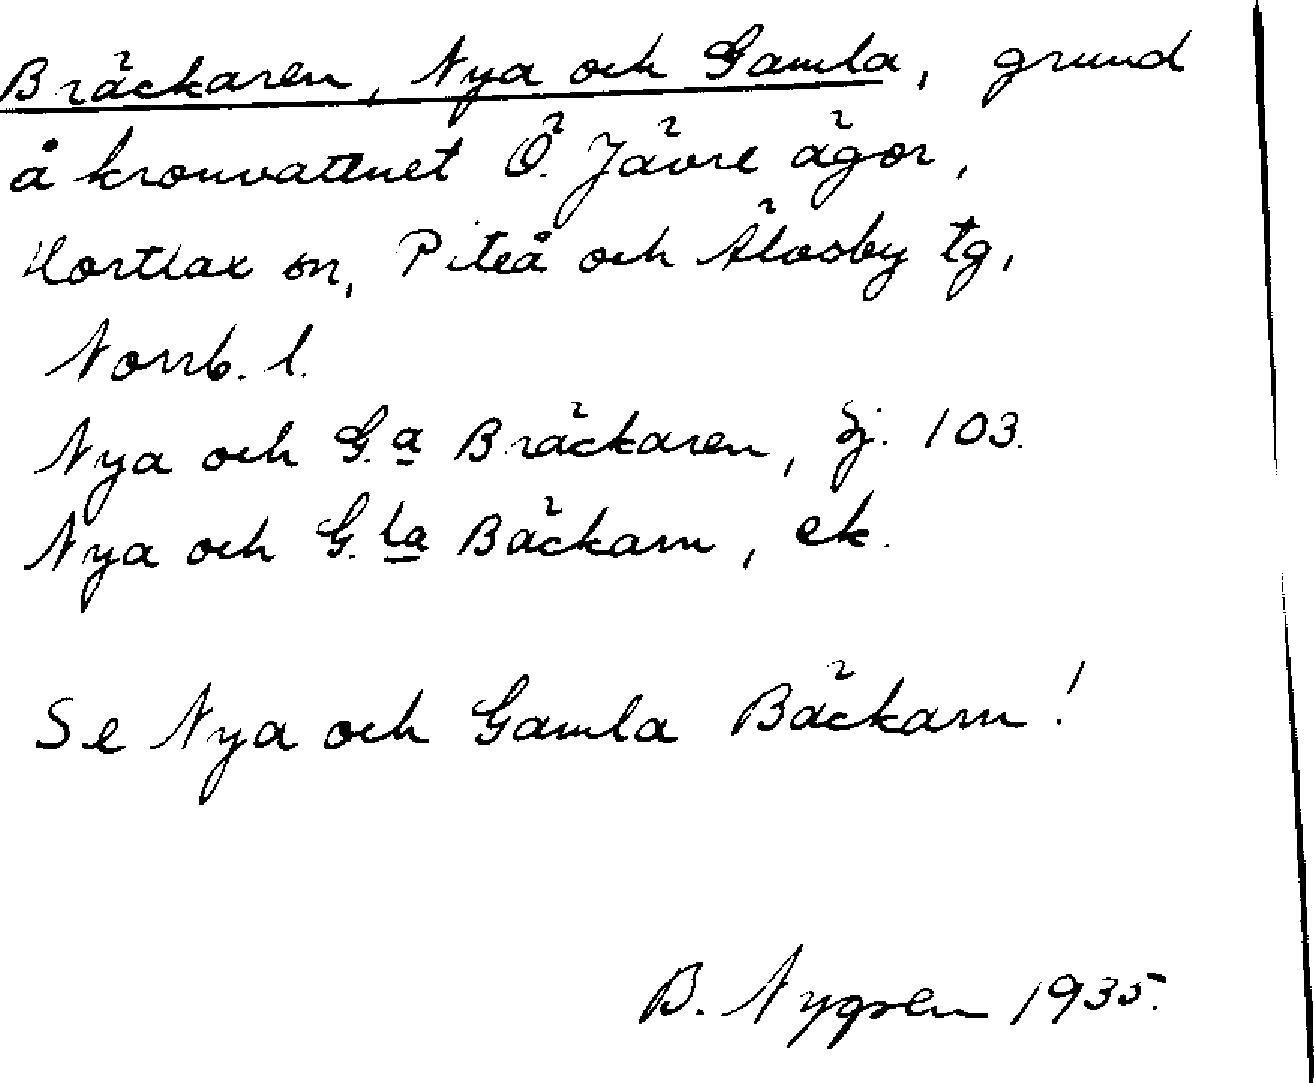 Bräckaren, Nya och Gamla, grund
å kronvattnet Ö. Jävre ägor,
Hortlax sn, Piteå och Älvsby tg,
Norrb. l.
Nya och G.a Bräckaren, Sj. 103.
Nya och G.la Bäckarn, ek.
Se Nya och Gamla Bäckarn!
B. Nygren 1935.